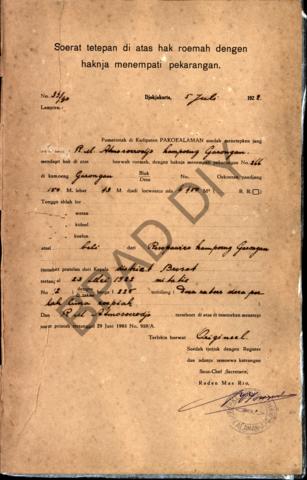 Soerat tetepan di atas hak roemah dengen
haknja menempati pekarangan.
No. 33/
Lampiran. Djokjakarta, 5 Juli 1922.
Pamerentah di Kadipaten PAKOEALAMAN soedah menetepken jang
R. M. Atmosoerodjo kampoeng Gerongan.
mendapt hak di atas boewah roemah, dengen haknja menempati pekarangan No. 266
di kampoeng Gerongan Blok No. Oekoeran pandjang
Desa
184 M. lebar 43 M. djadi loewasnja ada M² R. R.
Tengga sblah lor
wetan
kidoel
koelon
atsal beli dari kampoeng Gerongan
menoeroet pratelan dari Kapala district Barat
tertanggal 23 Mei 1922
No. 2 225 doea ratoes doea poe-
loeh lima roepiah
Dan R. M. Atmosoerodjo menoeroet di atas di temtoeken menetepi
soerat printah tertanggal 29 Juni 1901 No. 959/A.
Terbikin boewat Origineel.
Soedah tjotjok dengen Register
dan adanja semoewa katrangan
Sous-Chef Secretaris,
Raden Mas Rio.
BPAD DIY